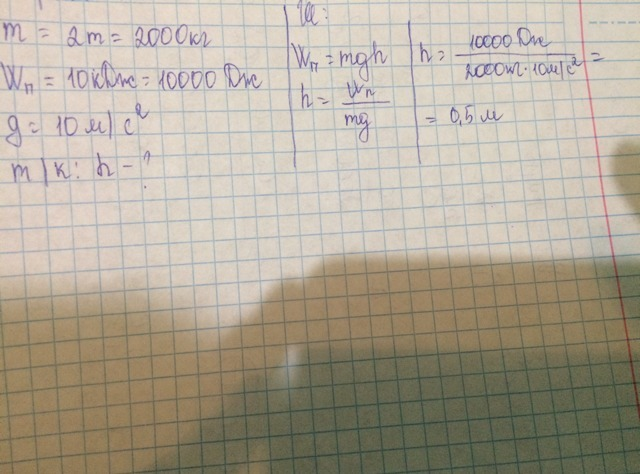 m = 2т = 2000кг
Wп = 10кДж = 10000 Дж
g = 10 м/с²
т/к: h - ?
Wп = mgh
h = Wп / mg
h = 10000 Дж / 2000кг · 10м/с² =
= 0,5 м